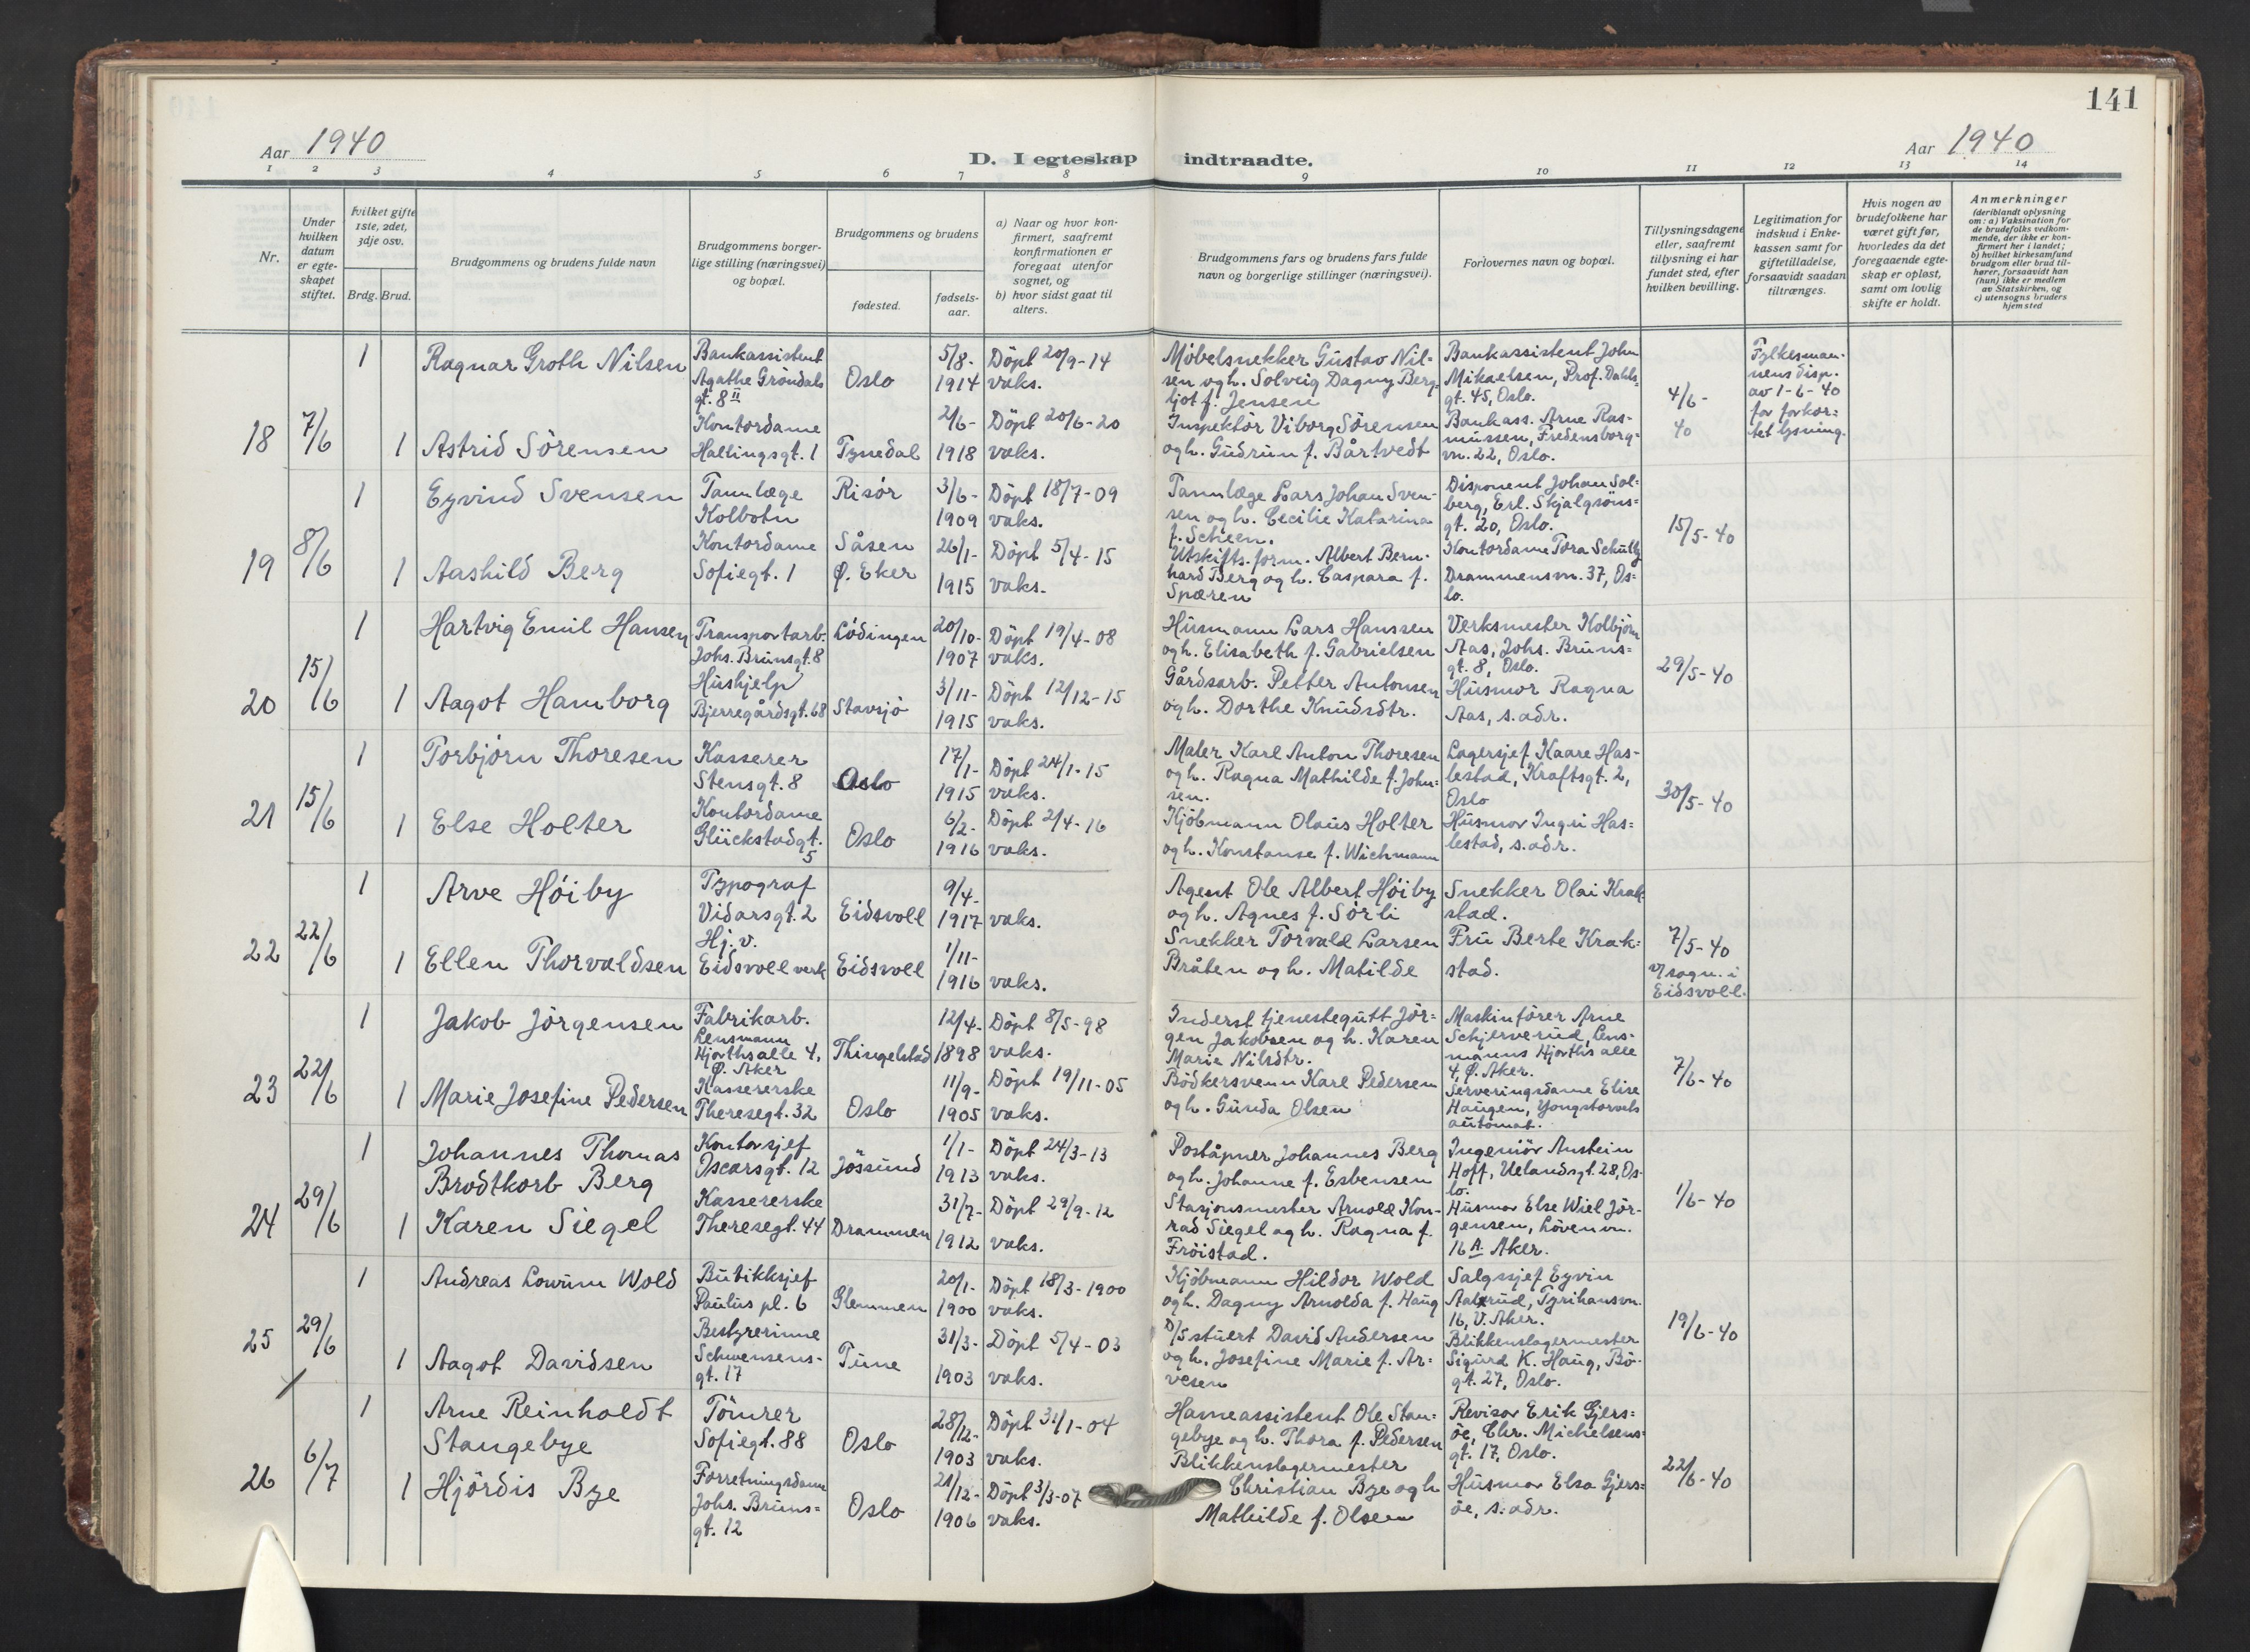 141
Aar 1940
D. I egteskap indtraadte.
Aar 1940
1 2 3 4 5 6 7 8 9 10 11 12 13 14
Nr.
Under
hvilken
datum
er egte-
skapet
stiftet.
hvilket gifte
1ste, 2det,
3dje osv.
Brdg. Brud.
Brudgommens og brudens fulde navn
Brudgommens borger-
lige stilling (næringsvei)
og bopæl.
Brudgommens og brudens
fødested.
fødsels-
aar.
a) Naar og hvor kon-
firmert, saafremt
konfirmationen er
foregaat utenfor
sognet, og
b) hvor sidst gaat til
alters.
Brudgommens fars og brudens fars fulde
navn og borgerlige stillinger (næringsvei).
Forlovernes navn og bopæl.
Tillysningsdagene
eller, saafremt
tillysning ei har
fundet sted, efter
hvilken bevilling.
Legitimation for
indskud i Enke-
kassen samt for
giftetilladelse,
forsaavidt saadan
tiltrænges.
Hvis nogen av
brudefolkene har
været gift før,
hvorledes da det
foregaaende egte-
skap er opløst,
samt om lovlig
skifte er holdt.
Anmerkninger
(deriblandt oplysning
om: a) Vaksination for
de brudefolks vedkom-
mende, der ikke er kon-
firmert her i landet;
b) hvilket kirkesamfund
brudgom eller brud til-
hører, forsaavidt han
(hun) ikke er medlem
av Statskirken, og
c) utensogns bruders
hjemsted
18
7/6
1
Ragnar Groth Nilsen
Bankassistent
Agathe Gröndals
gt. 8 II
Oslo
5/8-
1914
Döpt 20/9-14
vaks.
Möbelsnekker Gustav Nil=
sen og h. Solveig Dagny Berg=
ljot f. Jensen
Bankassistent John
Mikaelsen, Prof. Dahls=
gt. 45, Oslo.
4/6-
40
Fylkesman-
nens disp.
av 1-6-40
for forkor=
tet lysning.
1
Astrid Sörensen
Kontordame
Hallingsgt. 1
Tynedal
2/6-
1918
Döpt 20/6-20
vaks.
Inspektör Viborg Sörensen
og h. Gudrun f. Bårtvedt
Bankass. Arne Ras-
mussen, Fredensborg=
vn. 22, Oslo.
19
8/6
1
Eyvind Svensen
Tannlæge
Kolbotn
Risör
3/6-
1909
Döpt 18/7-09
vaks.
Tannlæge Lars Johan Sven-
sen og h. Cecilie Katarina
f. Scheen.
Disponent Johan Sol-
berg, Erl. Skjalgsöns=
gt. 20, Oslo.
15/5-40
1
Aashild Berg
Kontordame
Sofiegt. 1
Såsen
Ø. Eker
26/1-
1915
Döpt 5/4-15
vaks.
Utskifts.form. Albert Bern-
hard Berg og h. Caspara f.
Spæren
Kontordame Tora Schultz
Drammensvn. 37, Os=
lo.
20
15/6
1
Hartvig Emil Hansen
Transportarb.
Johs. Brunsgt. 8
Lödingen
20/10-
1907
Döpt 19/4-08
vaks.
Husmann Lars Hanssen
og h. Elisabeth f. Gabrielsen
Verksmester Kolbjörn
Aas, Johs. Bruns=
gt. 8, Oslo.
29/5-40
1
Aagot Hamborg
Hushjelp
Bjerregårdsgt. 68
Stavsjö
3/11-
1915
Döpt 12/12-15
vaks.
Gårdsarb. Petter Antonsen
og h. Dorthe Knudsdtr.
Husmor Ragna
Aas, s. adr.
21
15/6
1
Torbjörn Thoresen
Kasserer
Stensgt. 8
Oslo
17/1-
1915
Döpt 24/1-15
vaks.
Maler Karl Anton Thoresen
og h. Ragna Mathilde f. John=
sen.
Lagersjef Kaare Has-
lestad, Kraftsgt. 2,
Oslo
30/5-40
1
Else Holter
Kontordame
Glückstadgt.
5
Oslo
6/2-
1916
Döpt 2/4-16
vaks.
Kjöbmann Olaus Holter
og h. Konstanse f. Wichmann
Husmor Inqri Has=
lestad, s. adr.
22
22/6
1
Arve Höiby
Typograf
Vidarsgt. 2
Eidsvoll
9/4-
1917
vaks.
Agent Ole Albert Höiby
og h. Agnes f. Sörli
Snekker Olai Krak-
stad.
7/5-40
v/sogn. i
Eidsvoll.
1
Ellen Thorvaldsen
Hj. v.
Eidsvoll verk
Eidsvoll
1/11-
1916
vaks.
Snekker Torvald Larsen
Bråten og h. Matilde
Fru Berte Krak=
stad.
23
22/6
1
Jakob Jörgensen
Fabrikarb.
Lensmann
Hjorthsalle 4,
Ø. Aker
Thingelstad
12/4-
1898
Döpt 8/5-98
vaks.
Inderst tjenestegutt Jör=
gen Jakobsen og h. Karen
Marie Nilsdtr.
Maskinförer Arne
Schjerverud, Lens-
manns Hjorths alle
4, Ø. Aker.
7/6-40
1
Marie Josefine Pedersen
Kassererske
Theresegt. 32
Oslo
11/9-
1905
Döpt 19/11-05
vaks.
Bödkersvenn Karl Pedersen
og h. Gunda Olsen
Serveringsdame Elise
Haugen, Yongstorvets
automat.
24
29/6
1
Johannes Thomas
Brodtkorb Berg
Kontorsjef
Oscarsgt. 12
Jössund
1/1-
1913
Döpt 24/3-13
vaks.
Poståpner Johannes Berg
og h. Johanne f. Esbensen
Ingeniör Anstein
Hoff, Uelandsgt. 28, Os-
lo.
1/6-40
1
Karen Siegel
Kassererske
Theresegt. 44
Drammen
31/7-
1912
Döpt 29/9-12
vaks.
Stasjonsmester Arnold Kon-
rad Siegel og h. Ragna f.
Fröistad.
Husmor Else Wiel Jör-
gensen, Lövenvn.
16 A. Aker.
25
29/6
1
Andreas Lowum Wold
Butikksjef
Paulus pl. 6
Glemmen
20/1-
1900
Döpt 18/3-1900
vaks.
Kjöbmann Hildor Wold
og h. Dagny Arnolda f. Haug
Salgssjef Eyvin
Aalrud, Tyrihansvn.
16, V. Aker.
19/6-40
1
Aagot Davidsen
Bestyrerinne
Schwensens-
gt. 17
Tune
31/3-
1903
Döpt 5/4-03
vaks.
D/S stuert David Andersen
og h. Josefine Marie f. Ar=
vesen
Blikkenslagermester
Sigurd K. Haug, Bö-
gt. 27, Oslo.
26
6/7
1
Arne Reinholdt
Stangebye
Tömrer
Sofiegt. 88
Oslo
28/12-
1903
Döpt 31/1-04
vaks.
Havneassistent Ole Stan=
gebye og h. Thora f. Pedersen
Revisor Erik Gjers=
öe, Chr. Michelsens=
gt. 17, Oslo.
22/6-40
1
Hjördis Bye
Forretningsdame
Johs. Bruns=
gt. 12
Oslo
21/12-
1906
Döpt 3/3-07
vaks.
Blikkenslagermester
Christian Bye og h
Mathilde f. Olsen
Husmor Elsa Gjers=
öe, s. adr.